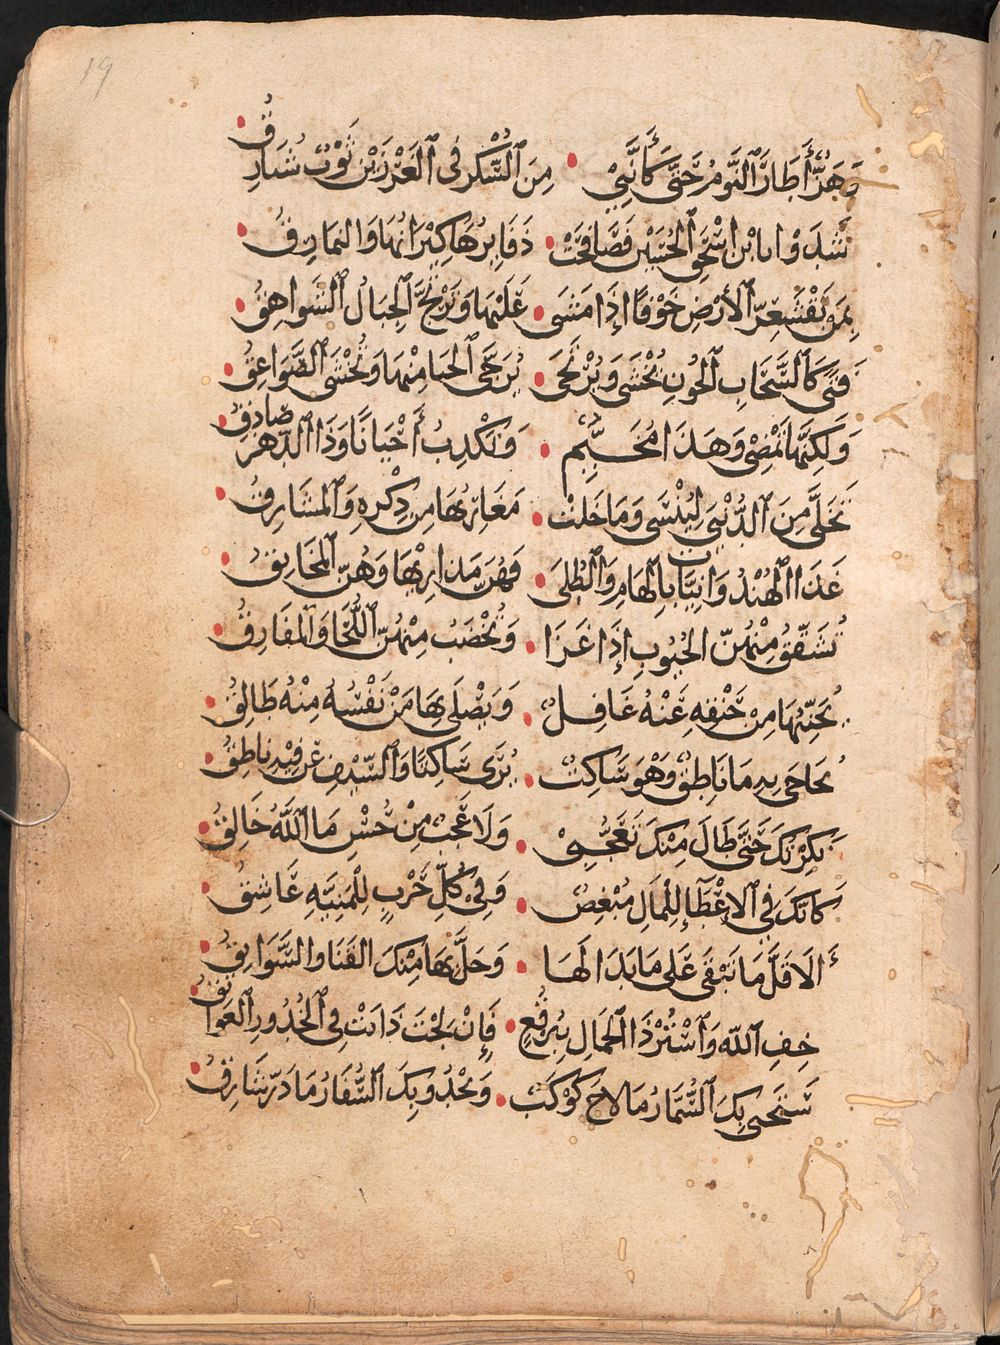 19
وَهَزٌّ أَطَارَ ٱلنَّوْمَ حَتَّى كَأَنَّنِي • مِنَ ٱلسُّكْرِ فِي ٱلْغَرْزَيْنِ ثَوْبٌ شُبَارِقُ
شَدَوْا بِابْنِ إِسْحٰقَ ٱلْحُسَيْنِ فَصَافَحَتْ • ذَفَارِيَهَا كِيرَانُهَا وَالنَّمَارِقُ
بِمَنْ تَقْشَعِرُّ ٱلْأَرْضُ خَوْفًا إِذَا مَشَى • عَلَيْهَا وَتَرْتَجُّ ٱلْجِبَالُ ٱلشَّوَاهِقُ
فَتًى كَٱلسَّحَابِ ٱلْجُونِ يُخْشَى وَيُرْتَجَى • يُرَجَّى ٱلْحَيَا مِنْهَا وَتُخْشَى ٱلصَّوَاعِقُ
وَلَكِنَّهَا تَمْضِي وَهَذَا مُخَيِّمٌ • وَتَكْذِبُ أَحْيَانًا وَذَا ٱلدَّهْرَ صَادِقُ
تَخَلَّى مِنَ ٱلدُّنْيَى لِيُنْسَى وَمَا خَلَتْ • مَغَارِبُهَا مِنْ ذِكْرِهِ وَٱلْمَشَارِقُ
غَذَا ٱلْهُنْدُوَانِيَّاتِ بِٱلْهَامِ وَٱلطُّلَى • فَهُنَّ مَدَارِيهَا وَهُنَّ ٱلْمَخَانِقُ
تُشَقَّقُ مِنْهُنَّ ٱلْجُيُوبُ إِذَا غَزَا • وَتُخْضَبُ مِنْهُنَّ ٱللِّحَا وَٱلْمَفَارِقُ
يُجَنَّبُهَا مَنْ حَتْفُهُ عَنْهُ غَافِلٌ • وَيَصْلَى بِهَا مَنْ نَفْسُهُ مِنْهُ طَالِقُ
يُحَاجَى بِهِ مَا نَاطِقٌ وَهْوَ سَاكِتٌ • يُرَى سَاكِتًا وَٱلسَّيْفُ عَنْ فِيهِ نَاطِقُ
نَكِرْتُكَ حَتَّى طَالَ مِنْكَ تَعَجُّبِي • وَلَا عَجَبٌ مِنْ حُسْنِ مَا ٱللَّهُ خَالِقُ
كَأَنَّكَ فِي ٱلْإِعْطَآءِ لِلْمَالِ مُبْغِضٌ • وَفِي كُلِّ حَرْبٍ لِلْمَنِيَّةِ عَاشِقُ
أَلَا قَلَّ مَا تَبْقَى عَلَى مَا بَدَا لَهَا • وَحَلَّ بِهَا مِنْكَ ٱلْقَنَا وَالسَّوَابِقُ
خِفِ ٱللهَ وَٱسْتُرْ ذَا ٱلْجَمَالَ بِبُرْقُعٍ • فَإِنْ لُحْتَ ذَابَتْ فِي ٱلْخُدُورِ ٱلْعَوَاتِقُ
سَيُحْيِي بِكَ ٱلسُّمَّارُ مَا لَاحَ كَوْكَبٌ • وَيَحْدُو بِكَ ٱلسُّفَّارُ مَا ذَرَّ شَارِقُ